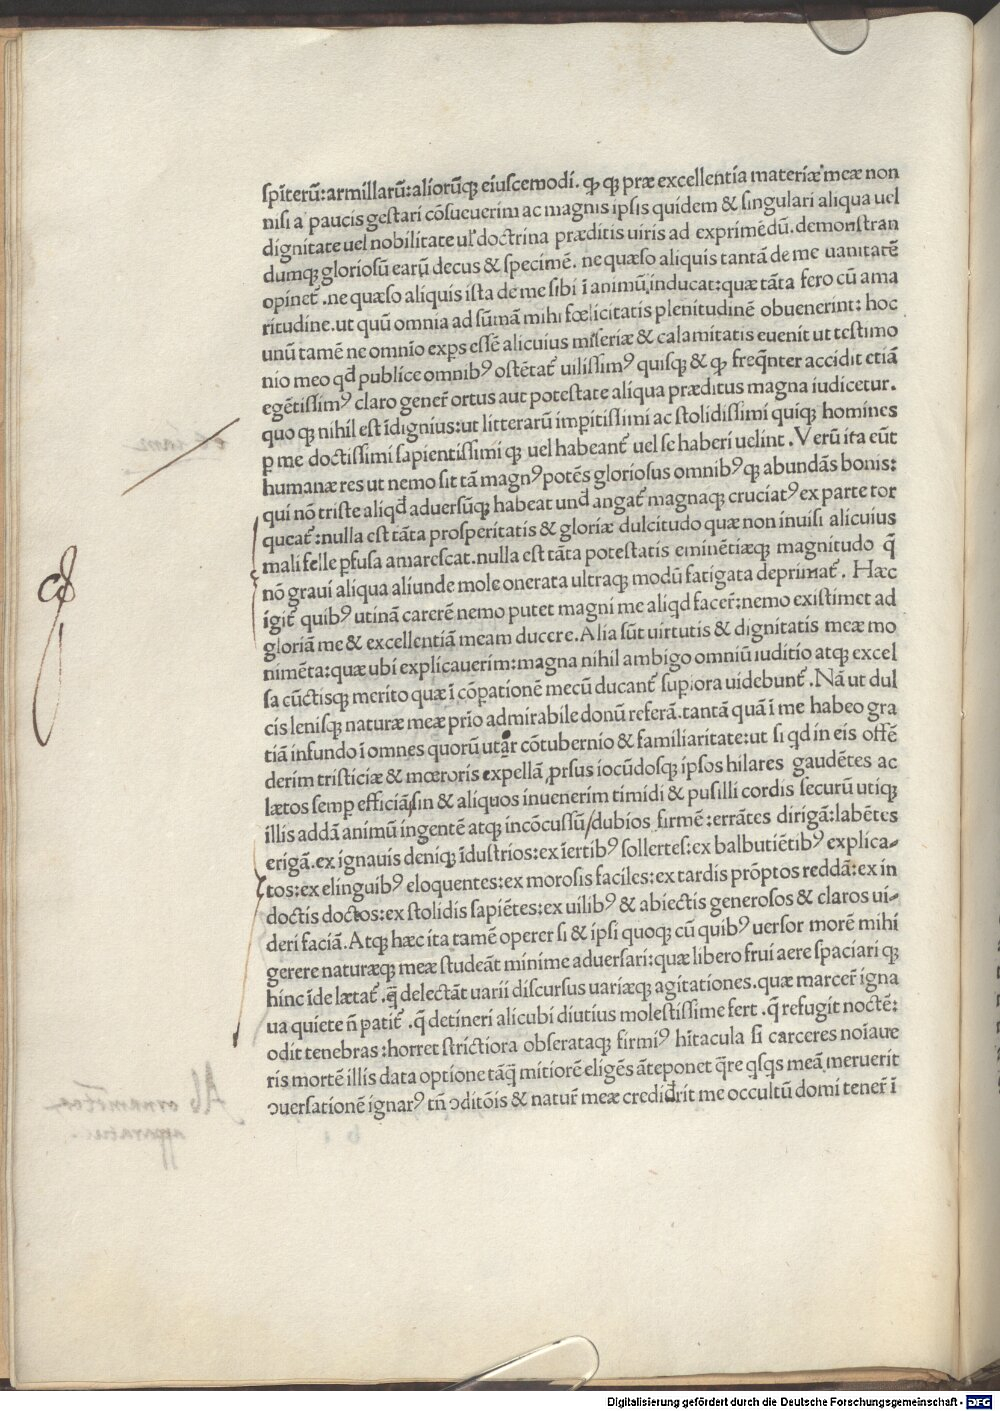 spīterū:armillarū:aliorūq; eiuscemodi. ꝙ q; præ excellentia materiæ meæ non
nisi a paucis gestari cōsueuerim ac magnis ipsis quidem & singulari aliqua uel
dignitate uel nobilitate ul' doctrina præditis uiris ad exprimēdū. demonstran
dumq; gloriosū earū decus & specimē. ne quæso aliquis tantā de me uanitatē
opinet᷑. ne quæso aliquis ista de me sibi ī animū inducat:quæ tāta fero cū ama
ritudine.ut quū omnia ad sūmā mihi fœlicitatis plenitudinē obuenerint: hoc
unū tamē ne omnīo exꝑs essē alicuius miseriæ & calamitatis euenit ut testimo
nio meo qđ publice omnibꝰ ostētat᷑ uilissimꝰ quisq; & ꝙ freq̄nter accidit etiā
egētissimꝰ claro gener᷑ ortus aut potestate aliqua præditus magna iudicetur.
quo q; nihil est īdignius:ut litterarū impitissimi ac stolidissimi quiq; homines
ꝑ me doctissimi sapientissimi q; uel habeant᷑ uel se haberi uelint. Verū ita eūt
humanæ res ut nemo sit tā magnꝰ potēs gloriosus omnibꝰ q; abundās bonis:
qui nō triste aliqđ aduersūq; habeat unđ angat᷑ magnaq; cruciat᷑ ex parte tor
queat᷑:nulla est tāta prosperitatis & gloriæ dulcitudo quæ non inuisi alicuius
mali felle ꝑfusa amarescat.nulla est tāta potestatis eminētiæq; magnitudo q̄
nō graui aliqua aliunde mole onerata ultraq; modū fatigata deprimat᷑. Hæc
igit᷑ quibꝰ utinā carerē nemo putet magni me aliqd facer᷑:nemo existimet ad
gloriā me & excellentiā meam ducere. Alia sūt uirtutis & dignitatis meæ mo
nimēta:quæ ubi explicauerim:magna nihil ambigo omniū iuditio atq; excel
sa cūctisq; merito quæ ī cōpationē mecū ducant᷑ supiora uidebunt᷑. Nā ut dul
cis lenisq; naturæ meæ prīo admirabile donū referā.tantā quā ī me habeo gra
tiā infundo ī omnes quorū utar cōtubernio & familiaritate:ut si qd in eis offē
derim tristiciæ & mœroris expellā ꝓrsus iocūdosq; ipsos hilares gaudētes ac
lætos semꝑ efficiā,sin & aliquos inuenerim timidi & pusilli cordis securū utiq;
illis addā animū ingentē atq; incōcussū/dubios firmē:errātes dirigā:labētes
erigā.ex ignauis deniq; īdustrios:ex īertibꝰ sollertes:ex balbutiētibꝰ explica-
tos:ex elinguibꝰ eloquentes:ex morosis faciles:ex tardis prōptos reddā:ex in
doctis doctos:ex stolidis sapiētes:ex uilibꝰ & abiectis generosos & claros ui-
deri faciā. Atq; hæc ita tamē operer si & ipsi quoq; cū quibꝰ uersor morē mihi
gerere naturæq; meæ studeāt minime aduersari:quæ libero frui aere spaciari q;
hinc īde lætat᷑. q̄ delectāt uarii discursus uariæq; agitationes. quæ marcer᷑ igna
ua quiete n̄ patit᷑. q̄ detineri alicubi diutius molestissime fert. q̄ refugit noctē:
odit tenebras:horret strictiora obserataq; firmiꝰ hītacula si carceres noīaue
ris mortē illis data optione tāq̄ mitiorē eligēs āteponet q̄re qsqs meā meruerit
ↄuersationē ignarꝰ tn̄ ↄditōis & natur᷑ meæ crediđrit me occultū domi tener᷑ ī
Digitalisierung gefördert durch die Deutsche Forschungsgemeinschaft - DFG